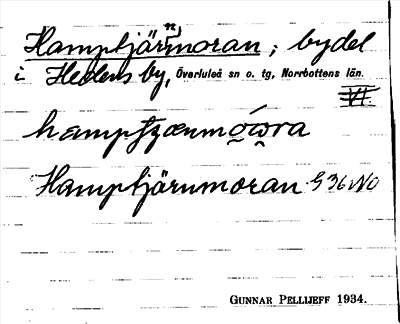 Hamptjärnmoran; bydel
i Hedens by, Överluleå sn o. tg, Norrbottens län.
VI.
Hamptjärnmoran G 36 NO
GUNNAR PELLIJEFF 1934.